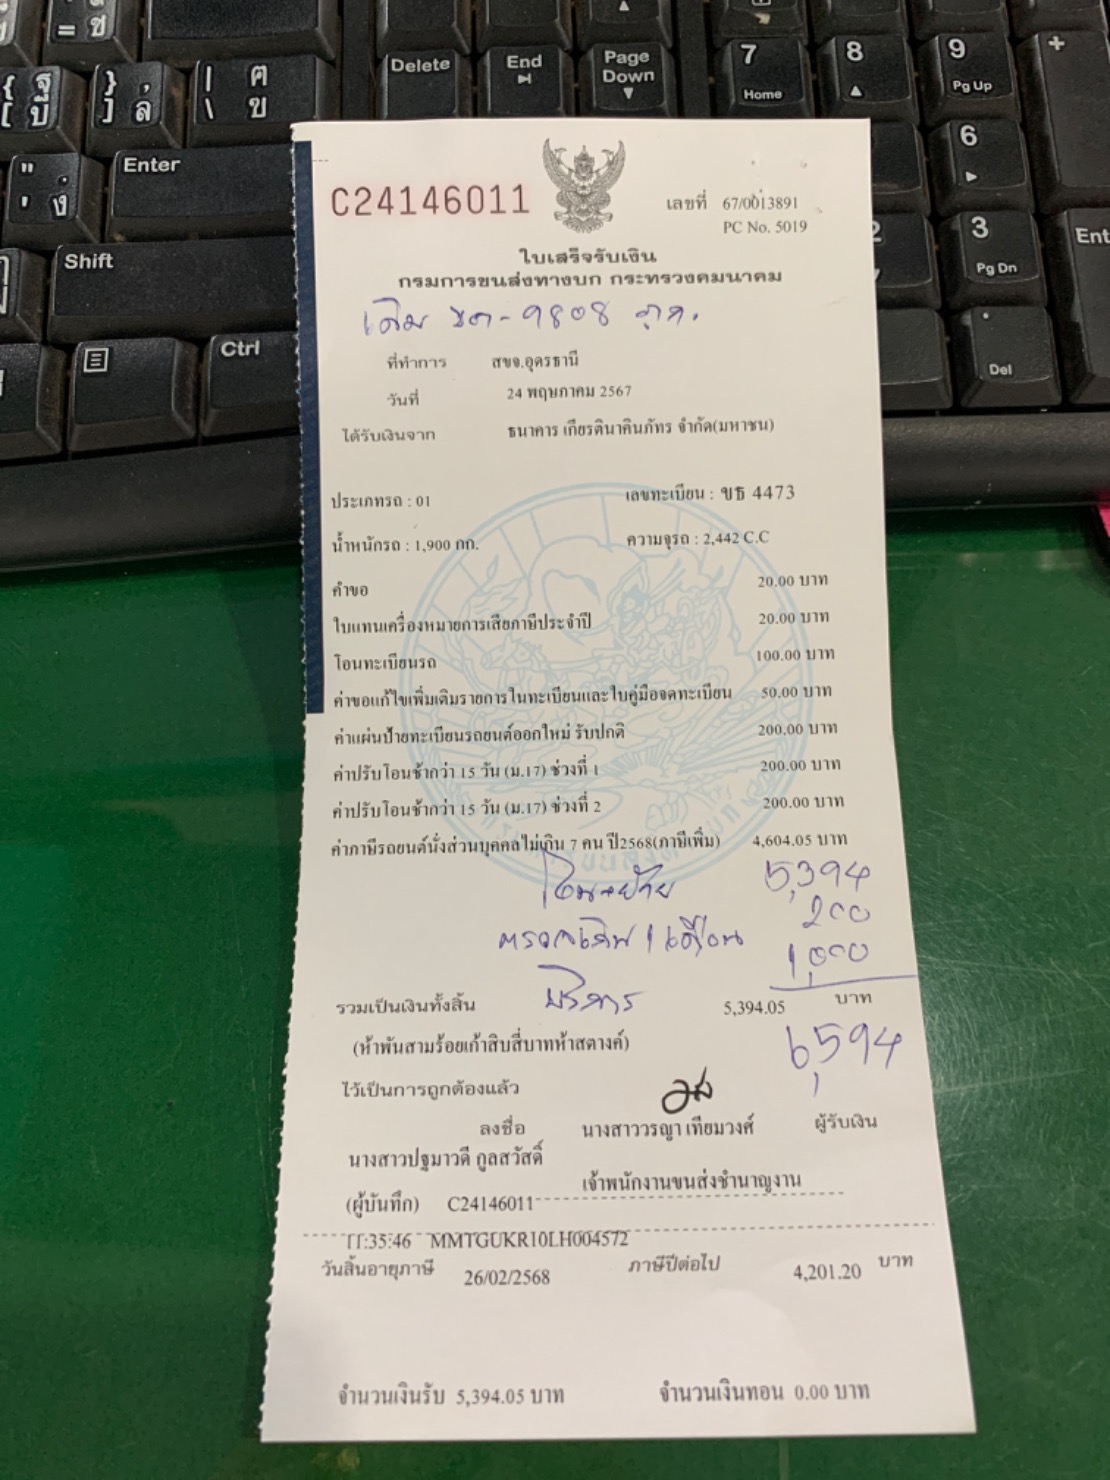 C24146011
เลขที่ 67/0013891
PC No. 5019
ใบเสร็จรับเงิน
กรมการขนส่งทางบก กระทรวงคมนาคม
เดิม ขต-9808 ภูเก็ต
ที่ทำการ สขจ.อุดรธานี
วันที่ 24 พฤษภาคม 2567
ได้รับเงินจาก ธนาคาร เกียรตินาคินภัทร จำกัด(มหาชน)
ประเภทรถ : 01 เลขทะเบียน : ขธ 4473
น้ำหนักรถ : 1,900 กก. ความจุรถ : 2,442 C.C
คำขอ 20.00 บาท
ใบแทนเครื่องหมายการเสียภาษีประจำปี 20.00 บาท
โอนทะเบียนรถ 100.00 บาท
ค่าขอแก้ไขเพิ่มเติมรายการในทะเบียนและใบคู่มือจดทะเบียน 50.00 บาท
ค่าแผ่นป้ายทะเบียนรถยนต์ออกใหม่ รับปกติ 200.00 บาท
ค่าปรับโอนช้ากว่า 15 วัน (ม.17) ช่วงที่ 1 200.00 บาท
ค่าปรับโอนช้ากว่า 15 วัน (ม.17) ช่วงที่ 2 200.00 บาท
ค่าภาษีรถยนต์นั่งส่วนบุคคลไม่เกิน 7 คน ปี2568(ภาษีเพิ่ม) 4,604.05 บาท
โอน+ย้าย 5,394
200
1,000
บริการ
รวมเป็นเงินทั้งสิ้น 5,394.05 บาท
(ห้าพันสามร้อยเก้าสิบสี่บาทห้าสตางค์) 6,594
ไว้เป็นการถูกต้องแล้ว
ลงชื่อ นางสาววรญา เทียมวงศ์ ผู้รับเงิน
นางสาวปฐมาวดี กูลสวัสดิ์
เจ้าพนักงานขนส่งชำนาญงาน
(ผู้บันทึก) C24146011
11:35:46 MMTGUKR10LH004572
วันสิ้นอายุภาษี 26/02/2568 ภาษีปีต่อไป 4,201.20 บาท
จำนวนเงินรับ 5,394.05 บาท จำนวนเงินทอน 0.00 บาท
Delete
End
Page Down
7 Home
8
9 Pg Up
+
Enter
6
Shift
3 Pg Dn
Ent
Ctrl
. Del